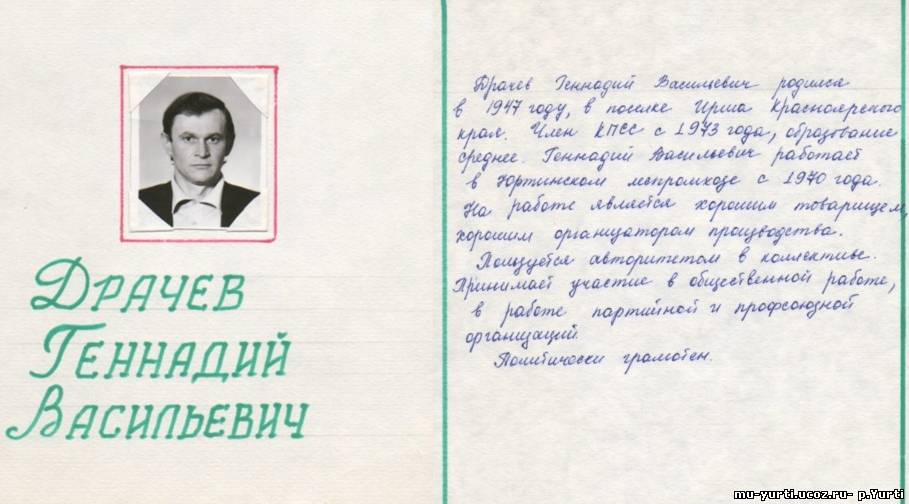 ДРАЧЕВ
ГЕННАДИЙ
ВАСИЛЬЕВИЧ
Драчев Геннадий Васильевич родился
в 1947 году, в поселке Ирша Красноярского
края. Член КПСС с 1973 года, образование
среднее. Геннадий Васильевич работает
в Юртинском леспромхозе с 1970 года.
На работе является хорошим товарищем,
хорошим организатором производства.
Пользуется авторитетом в коллективе.
Принимает участие в общественной работе,
в работе партийной и профсоюзной
организаций.
Политически грамотен.
mu-yurti.ucoz.ru- p.Yurti